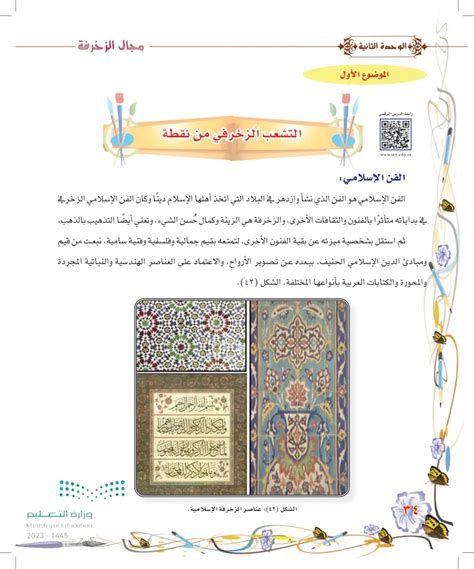 الوحدة الثانية
مجال الزخرفة
الموضوع الأول
رابط الدرس الرقمي
www.ien.edu.sa
التشعب الزخرفي من نقطة
الفن الإسلامي:
الفن الإسلامي هو الفن الذي نشأ وازدهر في البلاد التي اتخذ أهلها الإسلام دينًا وكان الفن الإسلامي الزخرفي
في بداياته متأثرًا بالفنون والثقافات الأخرى، والزخرفة هي الزينة وكمال حُسن الشيء، وتعني أيضًا التذهيب بالذهب،
ثم استقل بشخصية ميزته عن بقية الفنون الأخرى، لتمتعه بقيم جمالية وفلسفية وفنية سامية، نبعت من قيم
ومبادئ الدين الإسلامي الحنيف، ببعده عن تصوير الأرواح، والاعتماد على العناصر الهندسية والنباتية المجردة
والمحورة والكتابات العربية بأنواعها المختلفة، الشكل (٤٢).
بسم الله الرحمن الرحيم
الشكل (٤٢): عناصر الزخرفة الإسلامية.
٣٤
وزارة التعليم
Ministry of Education
2023 - 1445